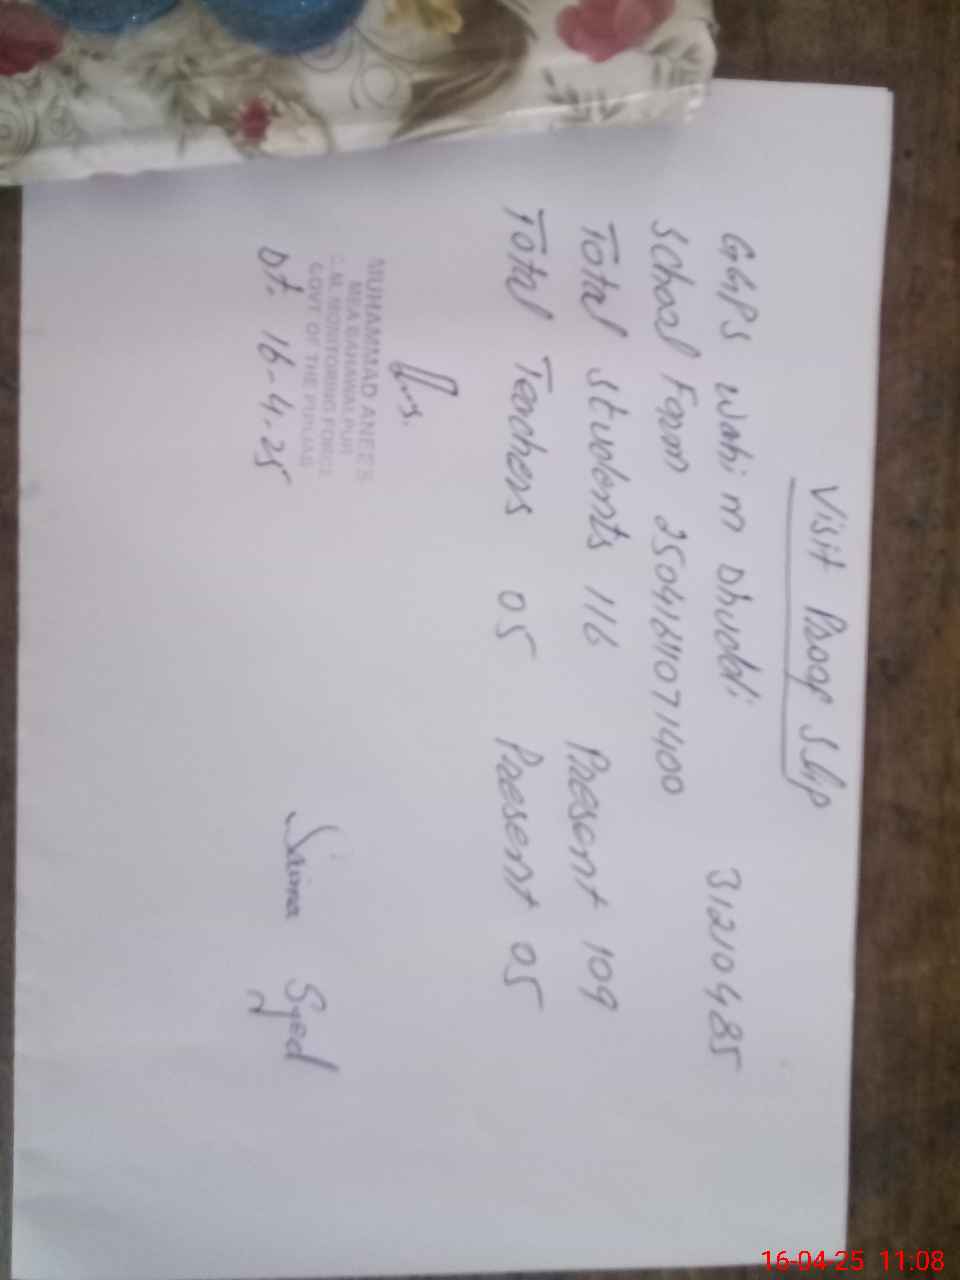 Visit Proof Slip
GGPS Wahi m Dhuddi 31210485
School Form 25041611071400
Total Students 116 Present 109
Total Teachers 05 Present 05
MUHAMMAD ANEES
MEA BAHAWALPUR
C.M. MONITORING FORCE
GOVT OF THE PUNJAB
Dt. 16-4-25
Saima Syed
16-04-25 11:08